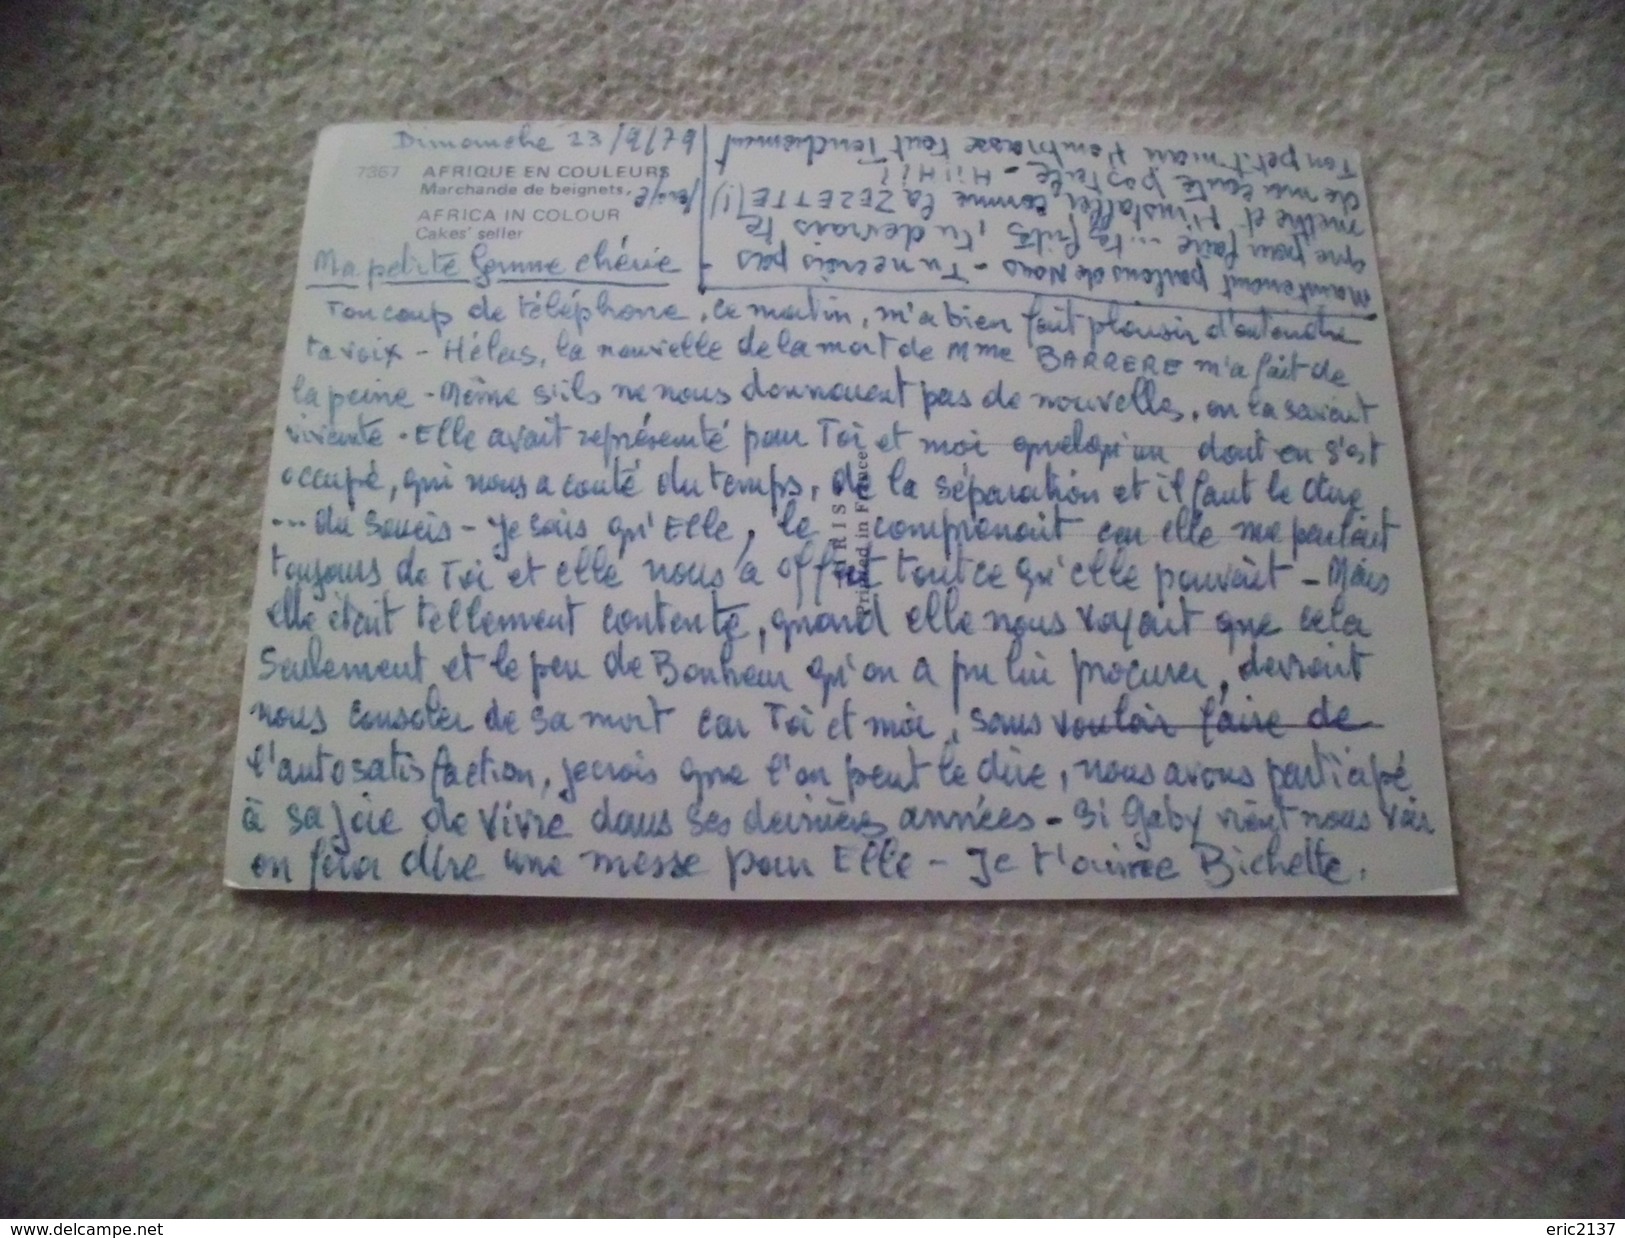 Dimanche 23/9/79
7367 AFRIQUE EN COULEURS
Marchande de beignets.
AFRICA IN COLOUR
Cakes' seller
Ma petite femme chérie
Ton coup de téléphone, ce matin, m'a bien fait plaisir d'entendre
ta voix - Hélas, la nouvelle de la mort de Mme BARRERE m'a fait de
la peine - Même s'ils ne nous donnaient pas de nouvelles, on la savait
vivante. Elle avait représenté pour Toi et moi quelqu'un dont on s'est
occupé, qui nous a couté du temps, de la séparation et il faut le dire
... du soucis - Je sais qu'Elle, le comprenait car elle me parlait
toujours de Toi et elle nous a offert tout ce qu'elle pouvait - Mais
elle était tellement contente, quand elle nous voyait que cela
seulement et le peu de Bonheur qu'on a pu lui procurer, devrait
nous consoler de sa mort car Toi et moi, sans vouloir faire de
l'autosatisfaction, je crois que l'on peut le dire, nous avons participé
à sa joie de vivre dans ses dernières années - Si Gaby vient nous voir
on fera dire une messe pour Elle - Je t'aimee Bichette.
IRIS
Printed in France
Maintenant parlons de Nous - Tu ne crois pas
que pour faire ... tes frites, tu devrais te
mettre et t'installer comme la ZEZETTE (!)
de ma carte postale - Hi! Hi!
Ton petit mari t'embrasse tout Tendrement